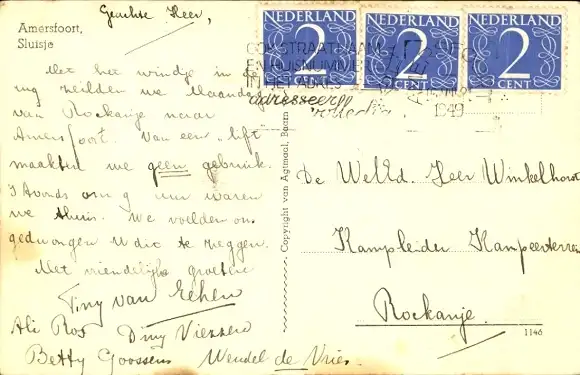 Amersfoort,
Sluisje
Geachte Heer,
Met het windje in de
rug zeilden we Maandag
van Rockanje naar
Amersfoort. Van een lift
maakten we geen gebruik.
's Avonds om 9 uur waren
we thuis. We voelden ons
gedwongen U dit te zeggen.
Met vriendelijke groeten
Tiny van Eeken
Ali Ros
Betty Goossens Wendel de Vries
Copyright van Agimaal, Baarn
NEDERLAND NEDERLAND NEDERLAND
2 2 2
CENT CENT CENT
OOK STRAATNAAM
EN HUISNUMMER
IN HET ADRES
1949
adresseert
volledig
De WelEd. Heer Winkelhorst
Kampleider Kampeerterrein
Rockanje
1146